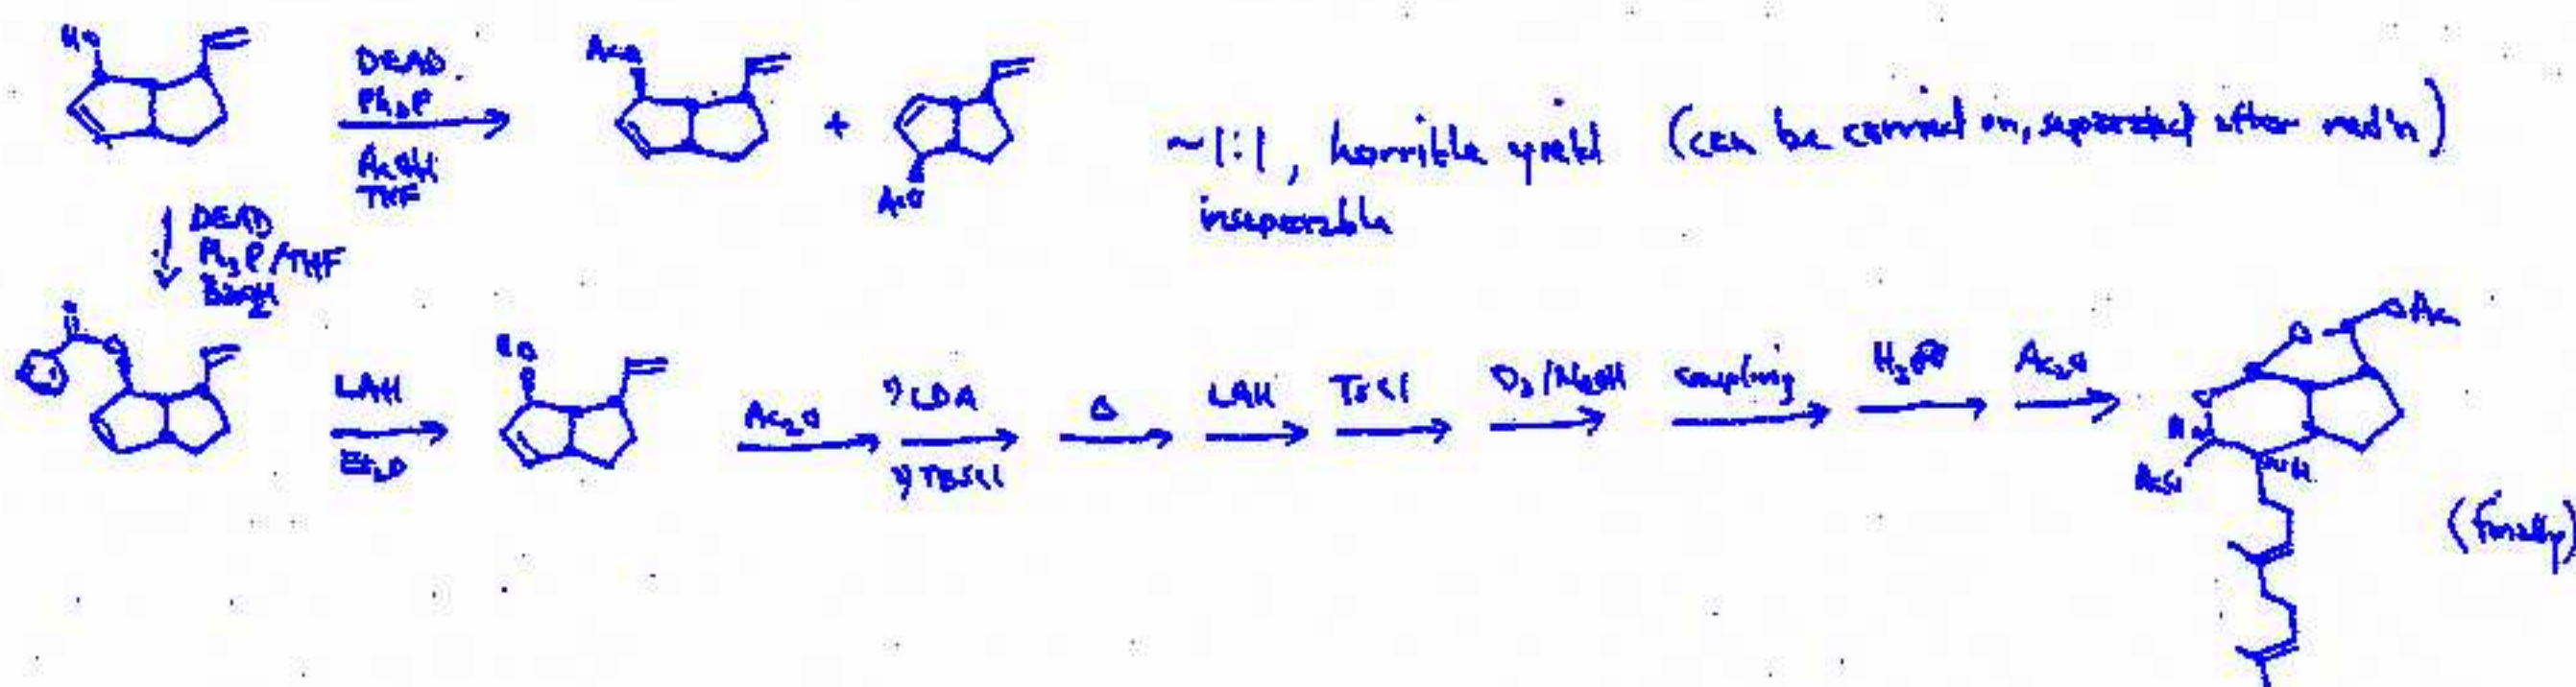 HO
DEAD
Ph3P
AcOH
THF
AcO
+
AcO
~1:1, horrible yield (can be carried on, separated after red'n)
inseparable
DEAD
Ph3P/THF
O
O
LAH
Et2O
HO
Ac2O
1) LDA
2) TBSCl
Δ
LAH
TsCl
O3/MeOH
coupling
H3O⊕
Ac2O
O
OAc
O
H
AcO
H
(finally)